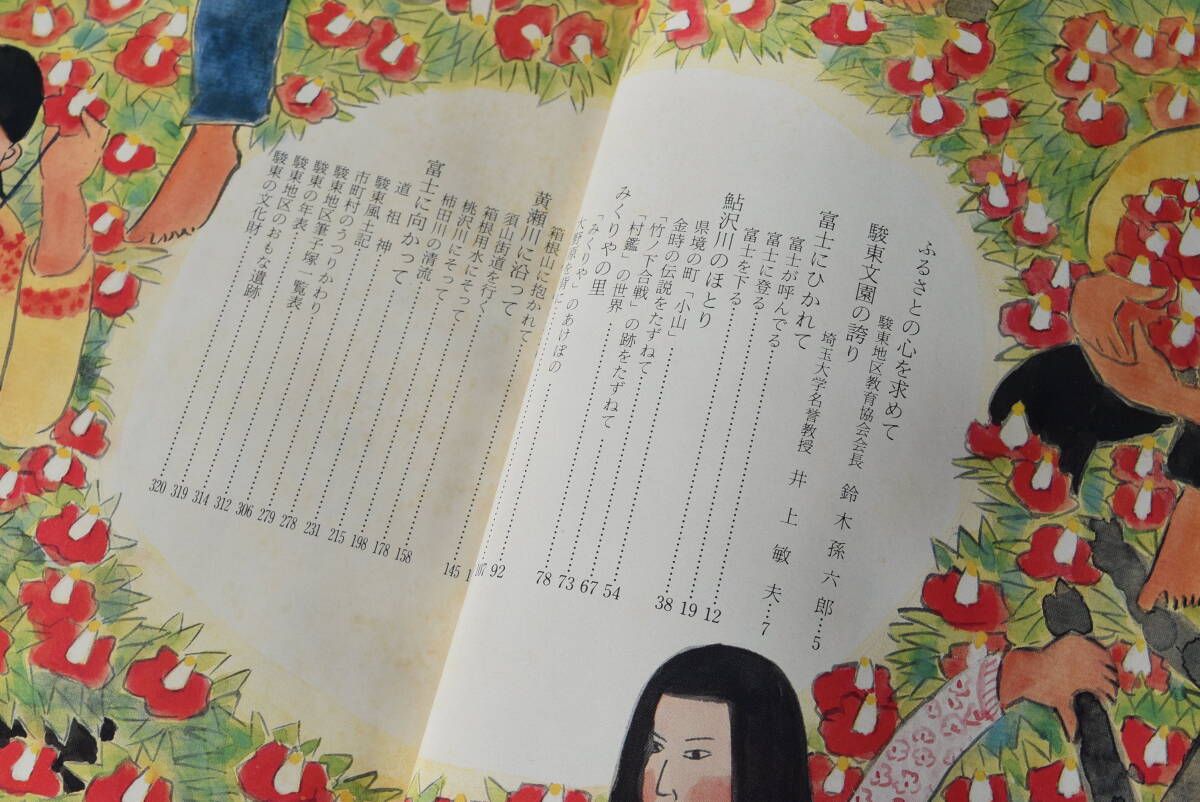 ふるさとの心を求めて
駿東地区教育協会会長 鈴木孫六郎…5
駿東文園の誇り
埼玉大学名誉教授 井上敏夫…7
富士にひかれて
富士が呼んでる…12
富士に登る…19
富士を下る…38
鮎沢川のほとり
県境の町「小山」…54
金時の伝説をたずねて…67
「竹ノ下合戦」の跡をたずねて…73
「村鑑」の世界…78
みくりやの里
「みくりや」のあけぼの…92
大野原を
107
黄瀬川に沿って
箱根山に抱かれて
145
須山街道を行く…158
箱根用水にそって…178
桃沢川にそって…198
柿田川の清流…215
富士に向かって
道祖神…231
駿東風土記…278
市町村のうつりかわり…279
駿東地区筆子塚一覧表…306
駿東の年表…312
駿東地区のおもな遺跡…314
駿東の文化財…319
320